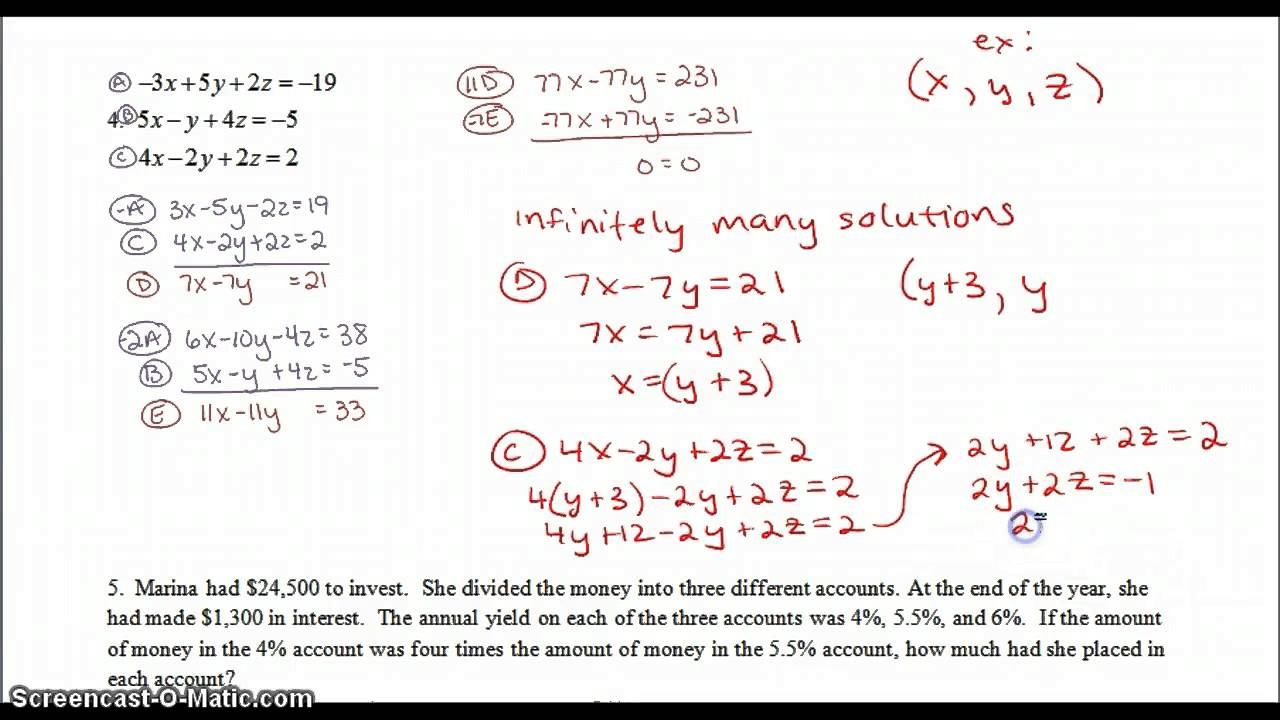 Ⓐ –3x+5y+2z=–19
4. Ⓑ 5x–y+4z=–5
Ⓒ 4x–2y+2z=2
-A 3x-5y-2z=19
C 4x-2y+2z=2
D 7x-7y =21
-2A 6x-10y-4z=38
B 5x-y+4z=-5
E 11x-11y =33
11D 77x-77y=231
-7E -77x+77y=-231
0=0
ex:
(x,y,z)
infinitely many solutions
D 7x-7y=21
7x=7y+21
x=(y+3)
(y+3, y
C 4x-2y+2z=2
4(y+3)-2y+2z=2
4y+12-2y+2z=2
2y+12+2z=2
2y+2z=-1
2=
5. Marina had $24,500 to invest. She divided the money into three different accounts. At the end of the year, she
had made $1,300 in interest. The annual yield on each of the three accounts was 4%, 5.5%, and 6%. If the amount
of money in the 4% account was four times the amount of money in the 5.5% account, how much had she placed in
each account?
Screencast-O-Matic.com